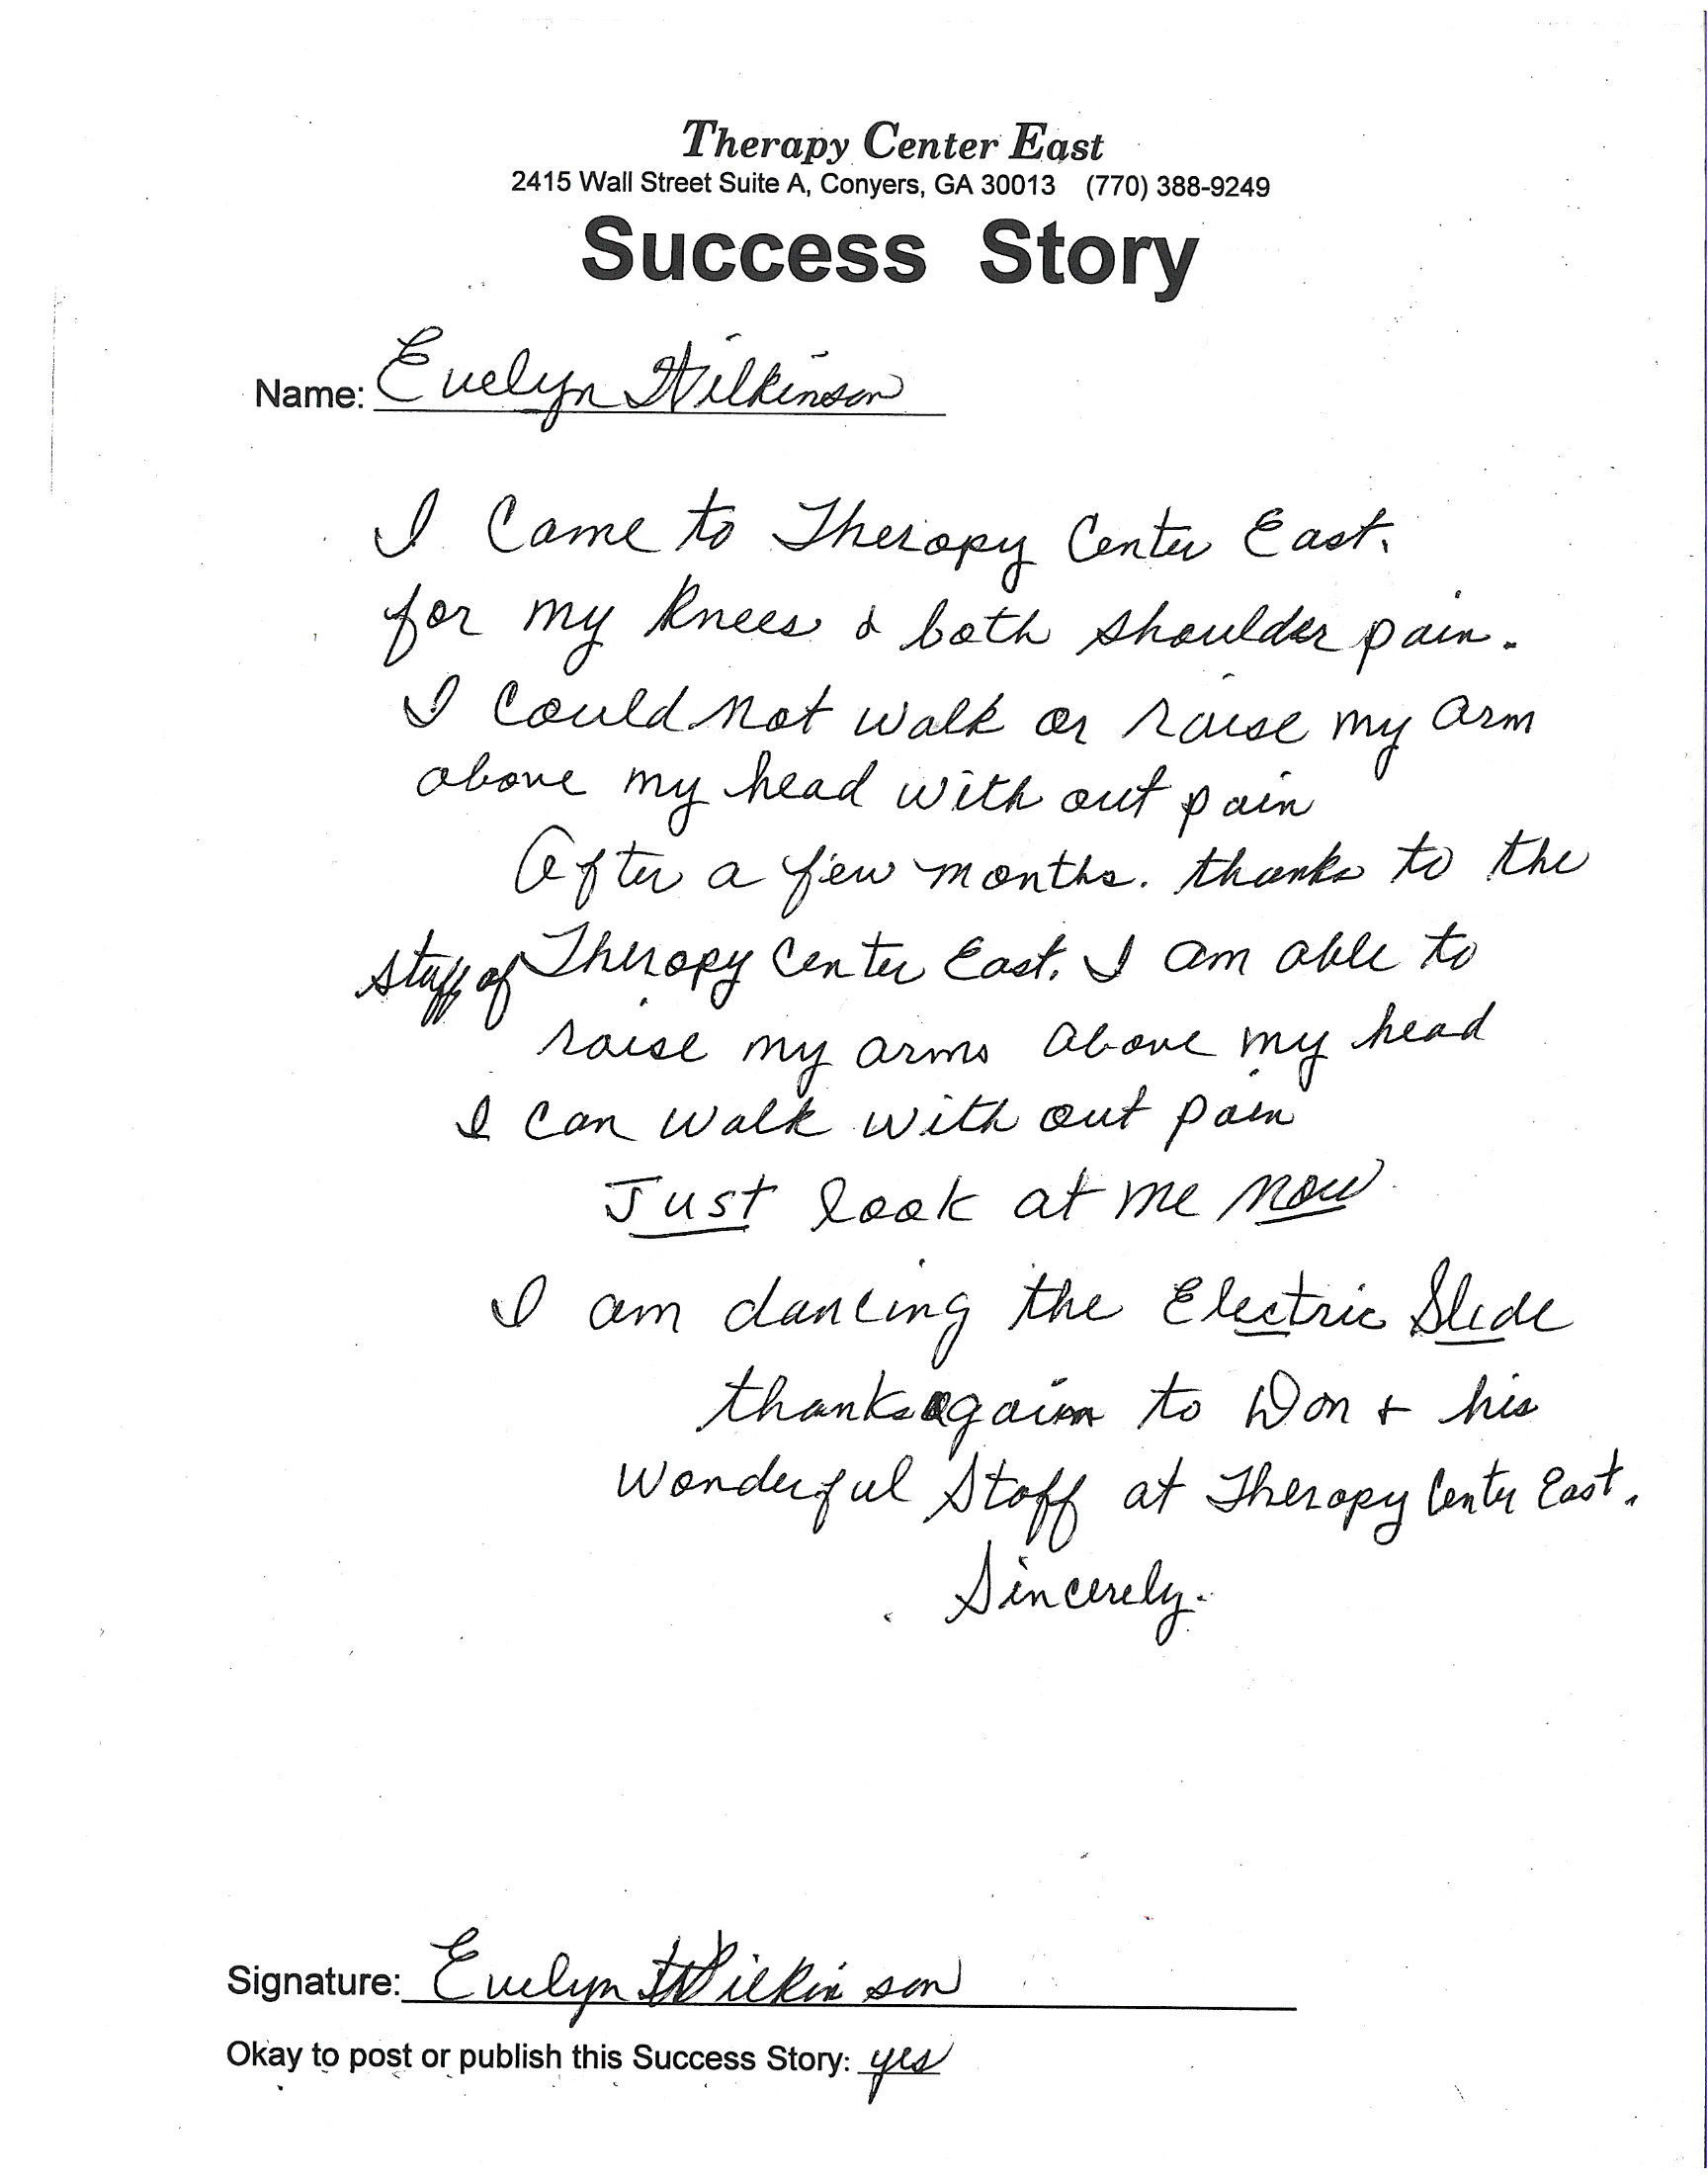 Therapy Center East
2415 Wall Street Suite A, Conyers, GA 30013 (770) 388-9249
Success Story
Name: Evelyn Wilkinson
I Came to Therapy Center East.
for my Knees & both shoulder pain.
I Could not walk or raise my arm
above my head with out pain
After a few months. thanks to the
staff of Therapy Center East. I am able to
raise my arms above my head
I can walk with out pain
Just look at me now
I am dancing the Electric Slide
thanks again to Don & his
Wonderful Staff at Therapy Center East.
Sincerely.
Signature: Evelyn Wilkinson
Okay to post or publish this Success Story: yes